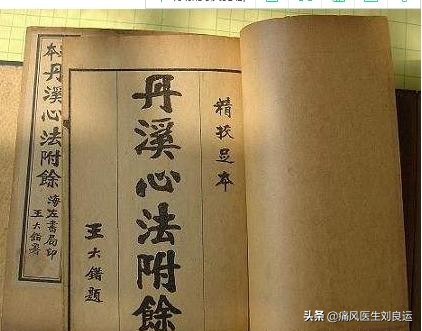 精校足本
丹溪心法附餘
王大錯題
丹溪心法附餘
海左書局印
王大錯署
头条 @痛风医生刘良运